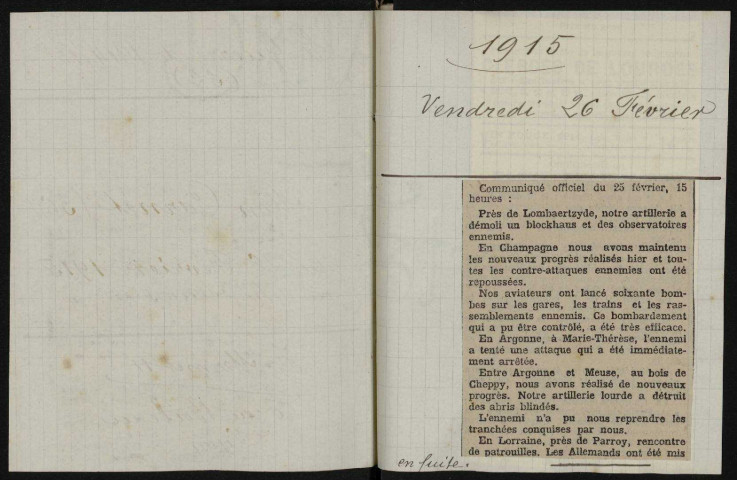 1915
Vendredi 26 Février
Communiqué officiel du 25 février, 15
heures :
Près de Lombaertzyde, notre artillerie a
démoli un blockhaus et des observatoires
ennemis.
En Champagne nous avons maintenu
les nouveaux progrès réalisés hier et tou-
tes les contre-attaques ennemies ont été
repoussées.
Nos aviateurs ont lancé soixante bom-
bes sur les gares, les trains et les ras-
semblements ennemis. Ce bombardement
qui a pu être contrôlé, a été très efficace.
En Argonne, à Marie-Thérèse, l'ennemi
a tenté une attaque qui a été immédiate-
ment arrêtée.
Entre Argonne et Meuse, au bois de
Cheppy, nous avons réalisé de nouveaux
progrès. Notre artillerie lourde a détruit
des abris blindés.
L'ennemi n'a pu nous reprendre les
tranchées conquises par nous.
En Lorraine, près de Parroy, rencontre
de patrouilles. Les Allemands ont été mis
en fuite.